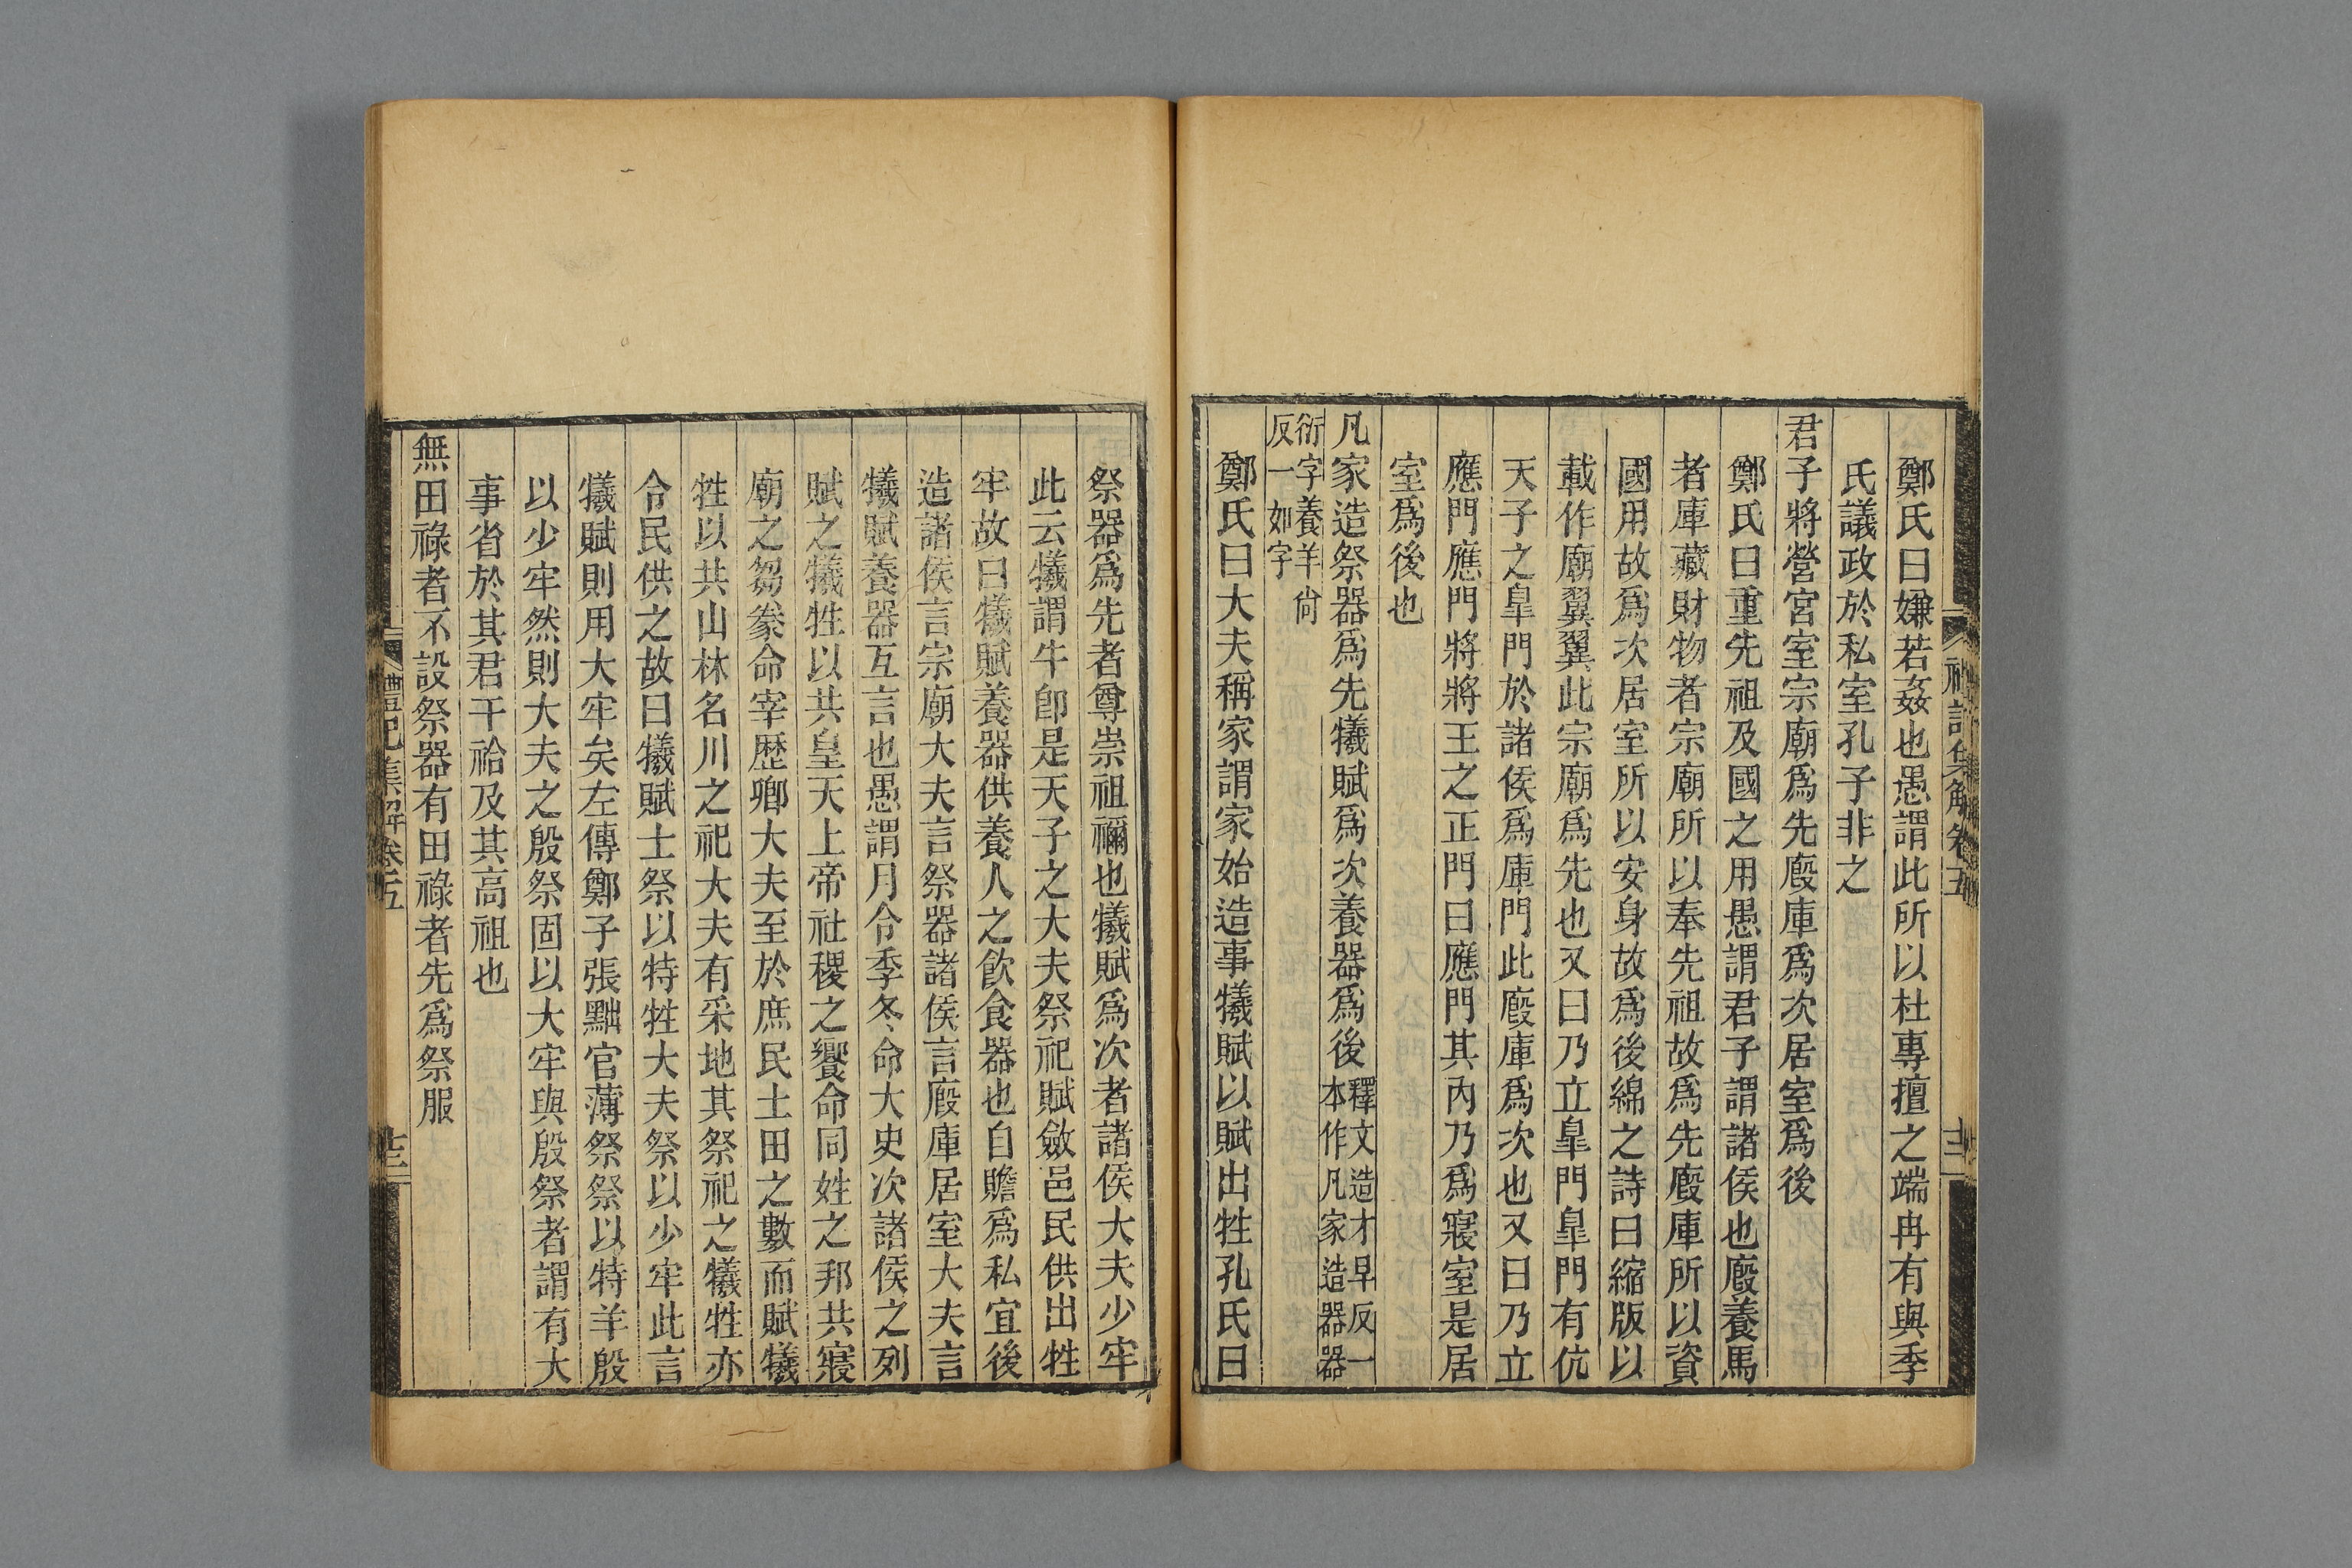 鄭氏曰嫌若姦也愚謂此所以杜專擅之端冉有與季
氏議政於私室孔子非之
君子將營宮室宗廟爲先廏庫爲次居室爲後
鄭氏曰重先祖及國之用愚謂君子謂諸侯也廏養馬
者庫藏財物者宗廟所以奉先祖故爲先廏庫所以資
國用故爲次居室所以安身故爲後綿之詩曰縮版以
載作廟翼翼此宗廟爲先也又曰乃立臯門臯門有伉
天子之臯門於諸侯爲庫門此廏庫爲次也又曰乃立
應門應門將將王之正門曰應門其內乃爲寢室是居
室爲後也
凡家造祭器爲先犧賦爲次養器爲後釋文造才早反一
本作凡家造器器
衍字養羊尙
反一如字
鄭氏曰大夫稱家謂家始造事犧賦以賦出牲孔氏曰
祭器爲先者尊崇祖禰也犧賦爲次者諸侯大夫少牢
此云犧謂牛卽是天子之大夫祭祀賦斂邑民供出牲
牢故曰犧賦養器供養人之飮食器也自贍爲私宜後
造諸侯言宗廟大夫言祭器諸侯言廏庫居室大夫言
犧賦養器互言也愚謂月令季冬命大史次諸侯之列
賦之犧牲以共皇天上帝社稷之饗命同姓之邦共寢
廟之芻豢命宰歷卿大夫至於庶民土田之數而賦犧
牲以共山林名川之祀大夫有采地其祭祀之犧牲亦
令民供之故曰犧賦士祭以特牲大夫祭以少牢此言
犧賦則用大牢矣左傳鄭子張黜官薄祭祭以特羊殷
以少牢然則大夫之殷祭固以大牢與殷祭者謂有大
事省於其君干祫及其高祖也
無田祿者不設祭器有田祿者先爲祭服
禮記集解卷五